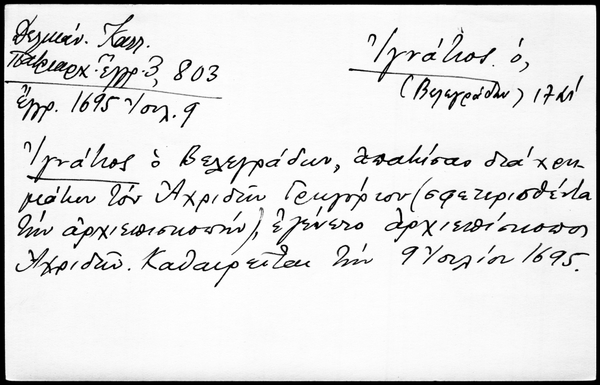 Δελικάν. Καλλ.
Πατριαρχ. Ἔγγρ. 3, 803
Ἔγγρ. 1695 Ἰουλ. 9
Ἰγνάτιος ὁ,
(Βελεγράδων) 17 αἰ
Ἰγνάτιος ὁ Βελεγράδων, ἀπατήσας διὰ χρη-
μάτων τὸν Ἀχριδῶν Γρηγόριον (σφετερισθέντα
τὴν ἀρχιεπισκοπήν), ἐγένετο ἀρχιεπίσκοπος
Ἀχριδῶν. Καθαιρεῖται τὴν 9 Ἰουλίου 1695.